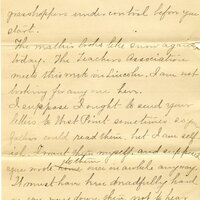 grasshoppers under control before you
start.
The weather looks like snow again
today. The Teachers Association
meets this week in Lincoln. I am not
looking for any one here.
I suppose I ought to send your
letters to West Point sometimes so
father could read them, but I am self
ish. I want them myself, and suppose
you wrote to them once in a while anyway.
It must have been dreadfully hard